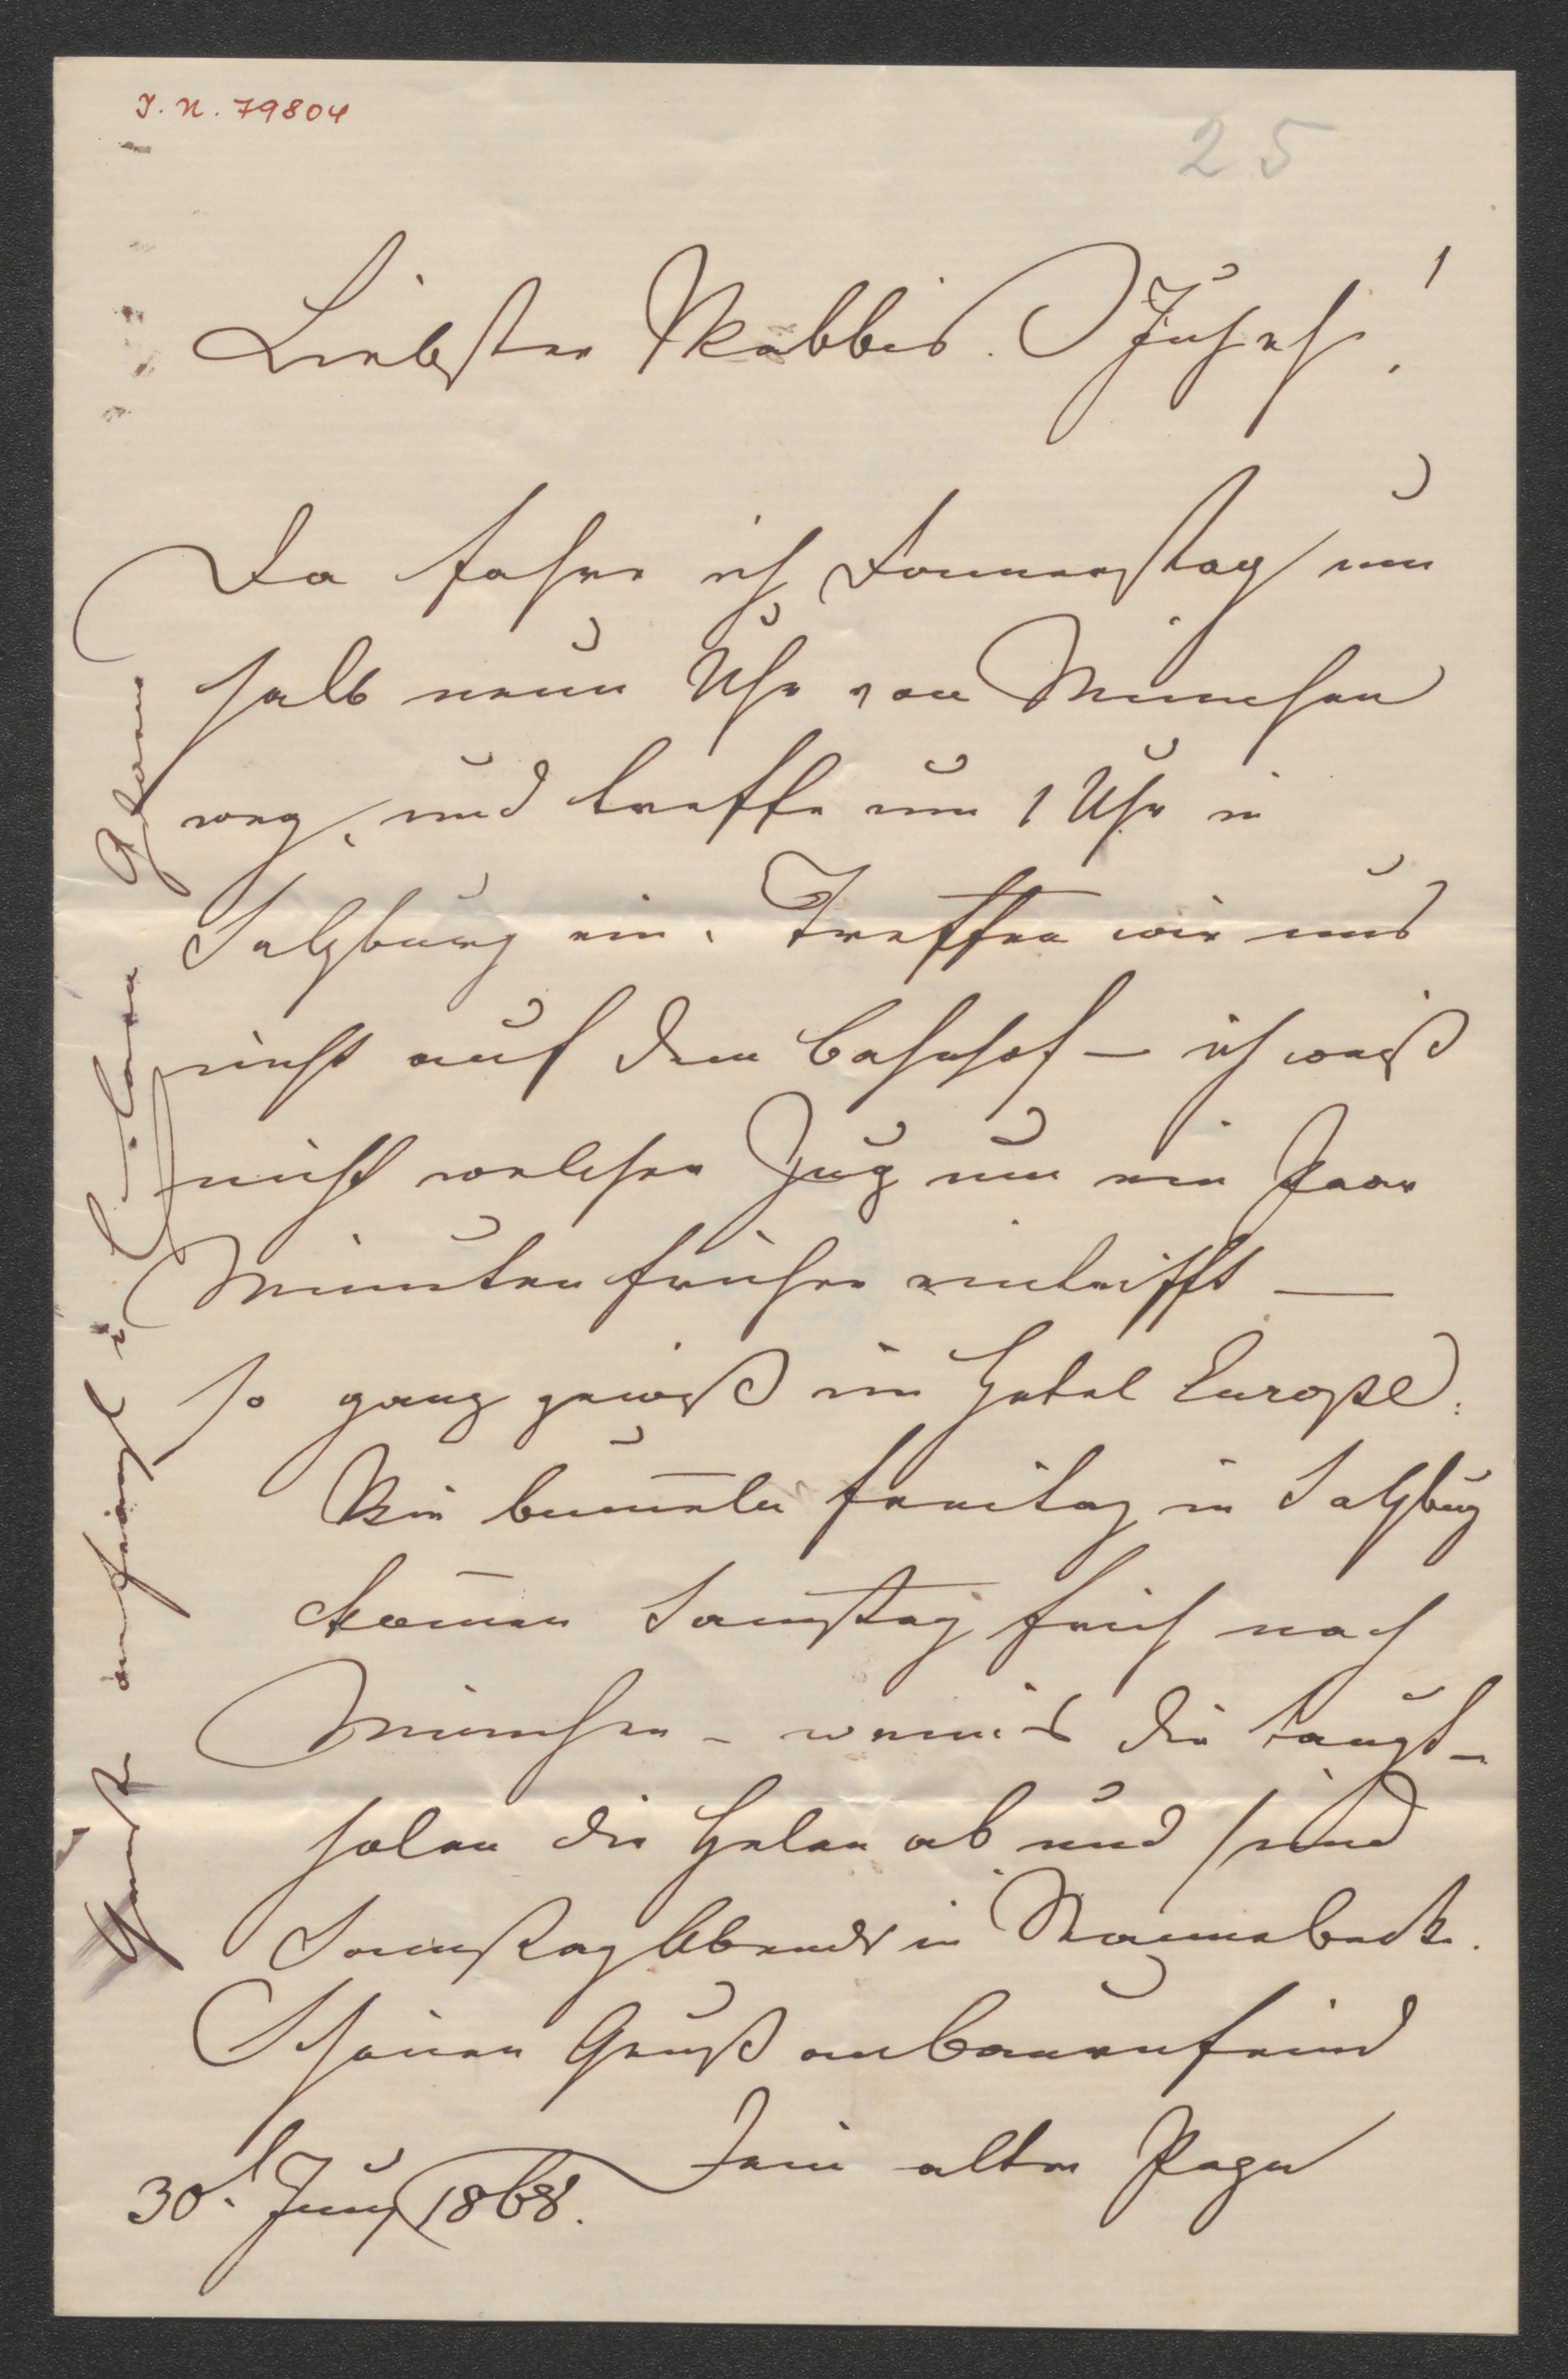 I. N. 79804
25
Liebster Rabbi Jusuf!
Da fahre ich Donnerstag um
halb neun Uhr von München
weg, und treffe um 1 Uhr in
Salzburg ein. Treffen wir uns
nicht auf dem Bahnhof — ich weiß
nicht welcher Zug um ein Paar
Minuten früher eintrifft —
so ganz gewiß im Hotel Europe.
Wir bum̅eln Freitag in Salzburg
kom̅en Samstag früh nach
München – wenn's dir taugt –
holen die Helen ab und sind
Samstag Abends in
Schönen Gruß an Bauernfeind
Dein alter
30t. Juny 1868.